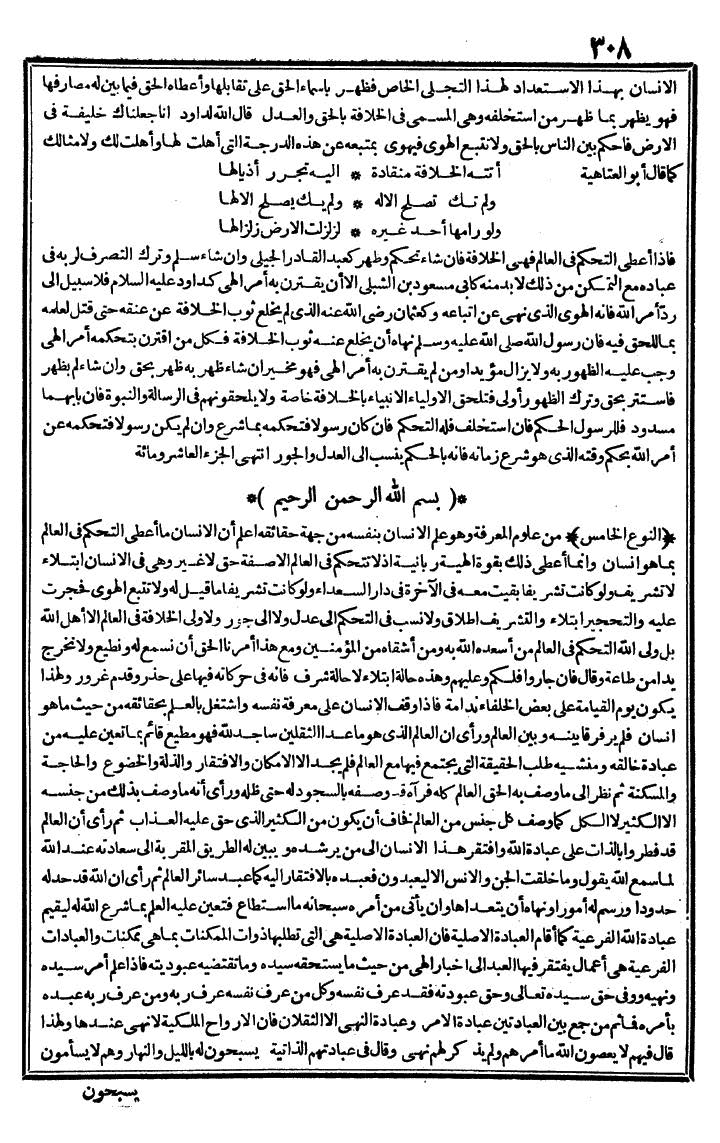 ٣٠٨
الانسان بهذا الاستعداد لهذا التجلى الخاص فظهر باسماء الحق على تقابلها وأعطاه الحق فيما بين له مصارفها
فهو يظهر بما ظهر من استخلفه وهى المسمى فى الخلافة بالحق والعدل قال الله لداود انا جعلناك خليفة فى
الارض فاحكم بين الناس بالحق ولا تتبع الهوى فيهوى بمتبعه عن هذه الدرجة التى أهلت لها وأهلت لك ولامثالك
كما قال أبو العتاهية أتته الخلافة منقادة * اليه تجرر أذيالها
ولم تك تصلح الا له * ولم يك يصلح الا لها
ولو رامها أحد غيره * لزلزلت الارض زلزالها
فاذا أعطى التحكم فى العالم فهى الخلافة فان شاء تحكم وظهر كعبد القادر الجيلى وان شاء سلم وترك التصرف لربه فى
عباده مع التمكن من ذلك لا بد منه كابى مسعود بن الشبلى الا أن يقترن به أمر الهى كداود عليه السلام فلا سبيل الى
ردّ أمر الله فانه الهوى الذى نهى عن اتباعه وكعثمان رضى الله عنه الذى لم يخلع ثوب الخلافة عن عنقه حتى قتل لعلمه
بما للحق فيه فان رسول الله صلى الله عليه وسلم نهاه أن يخلع عنه ثوب الخلافة فكل من اقترن بتحكمه أمر الهى
وجب عليه الظهور به ولا يزال مؤيدا ومن لم يقترن به أمر الهى فهو مخير ان شاء ظهر به ظهر بحق وان شاء لم يظهر
فاستتر بحق وترك الظهور أولى فتلحق الاولياء الانبياء بالخلافة خاصة ولا يلحقونهم فى الرسالة والنبوة فان بابهما
مسدود فللرسول الحكم فان استخلف فله التحكم فان كان رسولا فتحكمه بما شرع وان لم يكن رسولا فتحكمه عن
أمر الله بحكم وقته الذى هو شرع زمانه فانه بالحكم ينسب الى العدل والجور انتهى الجزء العاشر ومائة
*( بسم الله الرحمن الرحيم )*
﴿النوع الخامس﴾ من علوم المعرفة وهو علم الانسان بنفسه من جهة حقائقه اعلم أن الانسان ما أعطى التحكم فى العالم
بما هو انسان وانما أعطى ذلك بقوة الهية ربانية اذ لا تتحكم فى العالم الا صفة حق لا غير وهى فى الانسان ابتلاء
لا تشريف ولو كانت تشريفا بقيت معه فى الآخرة فى دار السعداء ولو كانت تشريفا ما قيل له ولا تتبع الهوى فحجرت
عليه والتحجير ابتلاء والتشريف اطلاق ولا نسب فى التحكم الى عدل ولا الى جور ولا ولى الخلافة فى العالم الا أهل الله
بل ولى الله التحكم فى العالم من أسعده الله به ومن أشقاه من المؤمنين ومع هذا أمرنا الحق أن نسمع له ونطيع ولا نخرج
يدا من طاعة وقال فان جاروا فلكم وعليهم وهذه حالة ابتلاء لا حالة شرف فانه فى حركاته فيها على حذر وقدم غرور ولهذا
يكون يوم القيامة على بعض الخلفاء ندامة فاذا وقف الانسان على معرفة نفسه واشتغل بالعلم بحقائقه من حيث ما هو
انسان فلم ير فرقا بينه وبين العالم ورأى ان العالم الذى هو ما عدا الثقلين ساجد لله فهو مطيع قائم بما تعين عليه من
عبادة خالقه ومنشيه طلب الحقيقة التى يجتمع فيها مع العالم فلم يجد الا الامكان والافتقار والذلة والخضوع والحاجة
والمسكنة ثم نظر الى ما وصف به الحق العالم كله فرآه قد وصفه بالسجود له حتى ظله ورأى أنه ما وصف بذلك من جنسه
الا الكثير لا الكل كما وصف كل جنس من العالم فخاف أن يكون من الكثير الذى حق عليه العذاب ثم رأى أن العالم
قد فطروا بالذات على عبادة الله وافتقر هذا الانسان الى من يرشده ويبين له الطريق المقربة الى سعادته عند الله
لما سمع الله يقول وما خلقت الجن والانس الا ليعبدون فعبده بالافتقار اليه كما عبد سائر العالم ثم رأى ان الله قد حد له
حدودا ورسم له أمورا ونهاه أن يتعداها وان يأتى من أمره سبحانه ما استطاع فتعين عليه العلم بما شرع الله له ليقيم
عبادة الله الفرعية كما أقام العبادة الاصلية فان العبادة الاصلية هى التى تطلبها ذوات الممكنات بما هى ممكنات والعبادات
الفرعية هى أعمال يفتقر فيها العبد الى اخبار الهى من حيث ما يستحقه سيده وما تقتضيه عبوديته فاذا علم أمر سيده
ونهيه ووفى حق سيده تعالى وحق عبودته فقد عرف نفسه وكل من عرف نفسه عرف ربه ومن عرف ربه عبده
بأمره فما ثم من جمع بين العبادتين عبادة الامر وعبادة النهى الا الثقلان فان الارواح الملكية لا نهى عندها ولهذا
قال فيهم لا يعصون الله ما أمرهم ولم يذكر لهم نهى وقال فى عبادتهم الذاتية يسبحون له بالليل والنهار وهم لا يسأمون
يسبحون